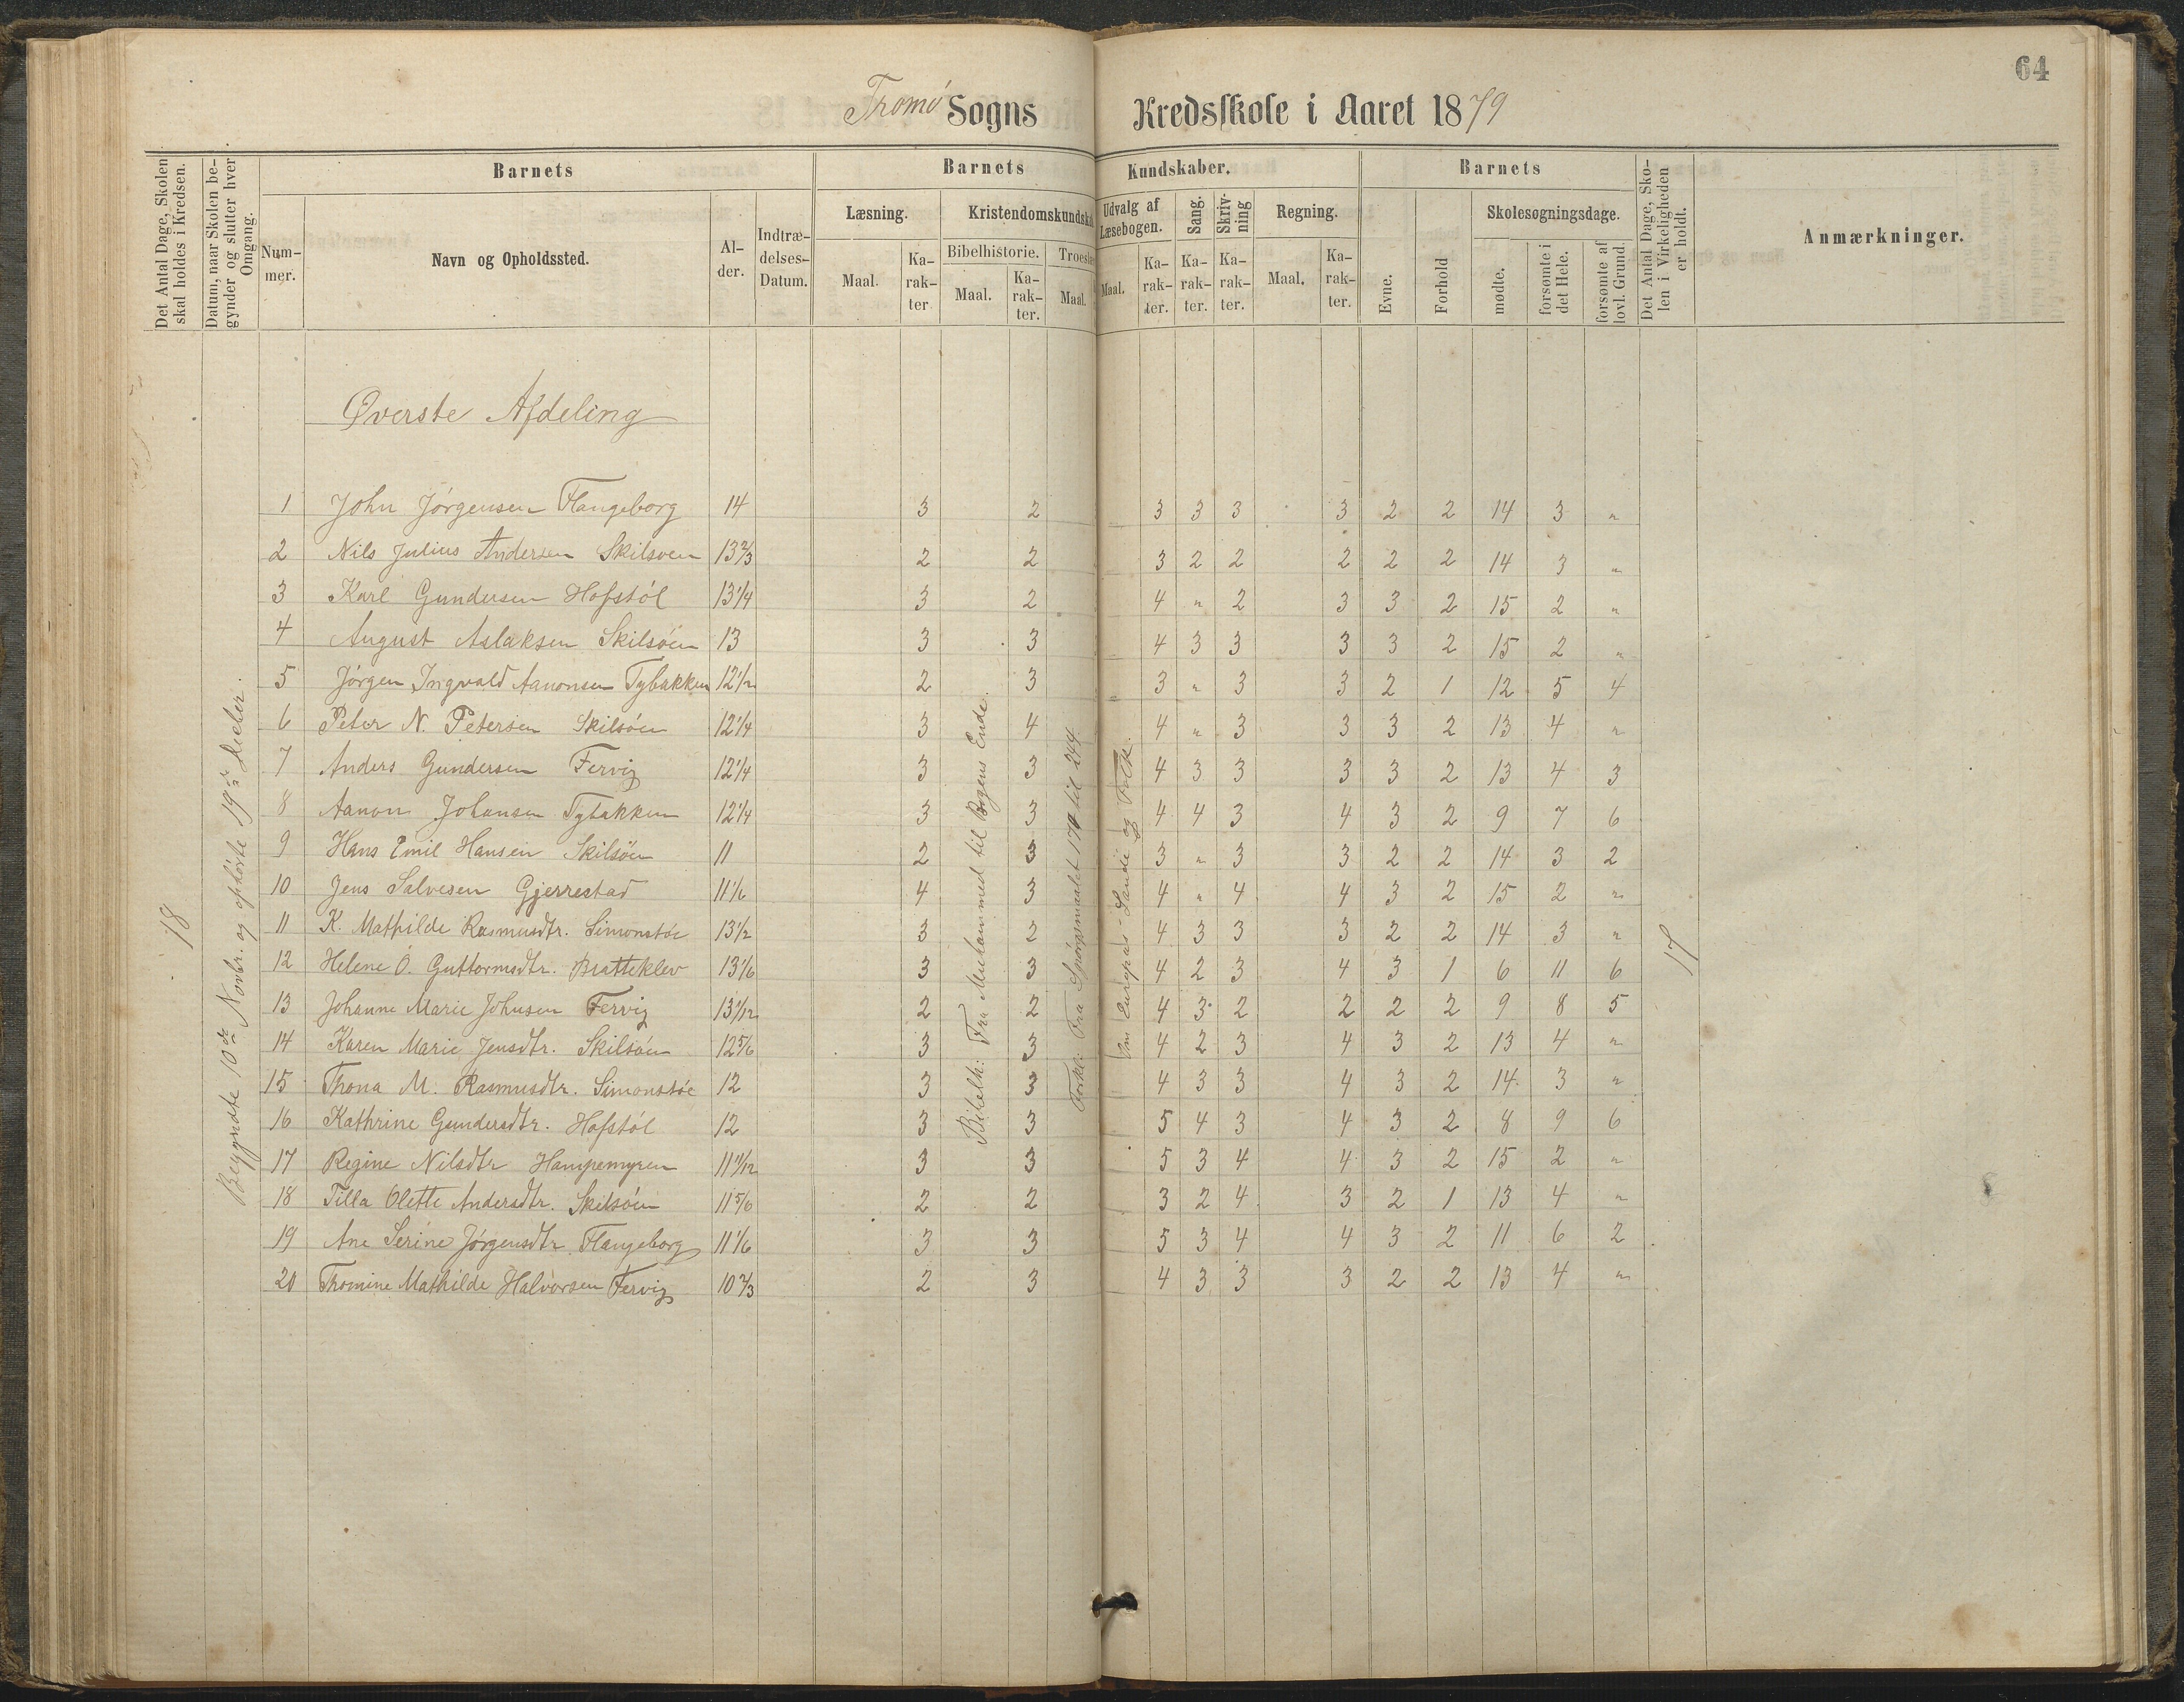 64
Tromö Sogns Kredsskole i Aaret 1879
Det Antal Dage, Skolen skal holdes i Kredsen.
Datum, naar Skolen begynder og slutter hver Omgang.
Barnets
Barnets Kundskaber.
Barnets
Det Antal Dage, Skolen i Virkeligheden er holdt.
Anmærkninger.
Nummer.
Navn og Opholdssted.
Alder.
Indtrædelses-Datum.
Læsning.
Maal.
Karakter
Kristendomskundska
Bibelhistorie.
Maal.
Karakter.
Troeslæ
Maal.
Udvalg af Læsebogen.
Maal.
Karakter.
Sang.
Karakter.
Skrivning
Karakter.
Regning.
Maal.
Karakter.
Evne.
Forhold
Skolesøgningsdage.
mødte.
forsømte i det Hele.
forsømte af lovl. Grund.
Øverste Afdeling
18
Begyndte 10de Novbr. og ophörte 19de
Bibelh: Fra Mutanmed til Bogens Ende.
Fra Spörgsmaalet 170 til 244.
Om Europas Lande og Folk.
17
1 John Jörgensen Flangeborg 14 3 2 3 3 3 3 2 2 14 3 "
2 Nils Julius Andersen Skilsoen 13 2/3 2 2 3 2 2 2 2 2 14 3 "
3 Karl Gundersen Hofstöl 13 1/4 3 2 4 " 2 3 3 2 15 2 "
4 August Aslaksen Skilsöen 13 3 3 4 3 3 3 3 2 15 2 "
5 Jörgen Ingvald Aanonsen Tybakken 12 1/2 2 3 3 " 3 3 2 1 12 5 4
6 Peter N. Petersen Skilsöen 12 1/4 3 4 4 " 3 3 3 2 13 4 "
7 Anders Gundersen Fervig 12 1/4 3 3 4 3 3 3 3 2 13 4 3
8 Aanon Johansen Tybakken 12 1/4 3 3 4 4 3 4 3 2 9 7 6
9 Hans Emil Hansen Skilsöen 11 2 3 3 " 3 3 2 2 14 3 2
10 Jens Salvesen Gjerrestad 11 1/6 4 3 4 " 4 4 3 2 15 2 "
11 K. Mathilde Rasmusdtr. Simonstöe 13 1/2 3 2 4 3 3 3 2 2 14 3 "
12 Helene O. Guttormsdtr. Bratteklev 13 1/6 3 3 4 2 3 4 3 1 6 11 6
13 Johanne Marie Johnsen Fervig 13 1/12 2 2 4 3 2 2 2 2 9 8 5
14 Karen Marie Jensdtr. Skilsöen 12 5/6 3 3 4 2 3 4 3 2 13 4 "
15 Thona M. Rasmusdtr. Simonstöe 12 3 3 4 3 3 4 3 2 14 3 "
16 Kathrine Gundersdtr. Hofstöl 12 3 3 5 4 3 4 3 2 8 9 6
17 Regine Nilsdtr Hampemyren 11 11/12 3 3 5 3 4 4 3 2 15 2 "
18 Tilla Olette Andersdtr. Skilsöen 11 5/6 2 2 3 2 4 3 2 1 13 4 "
19 Ane Serine Jörgensdtr Flangeborg 11 1/6 3 3 5 3 4 4 3 2 11 6 2
20 Thomine Mathilde Halvorsen Fervig 10 2/3 2 3 4 3 3 3 2 2 13 4 "